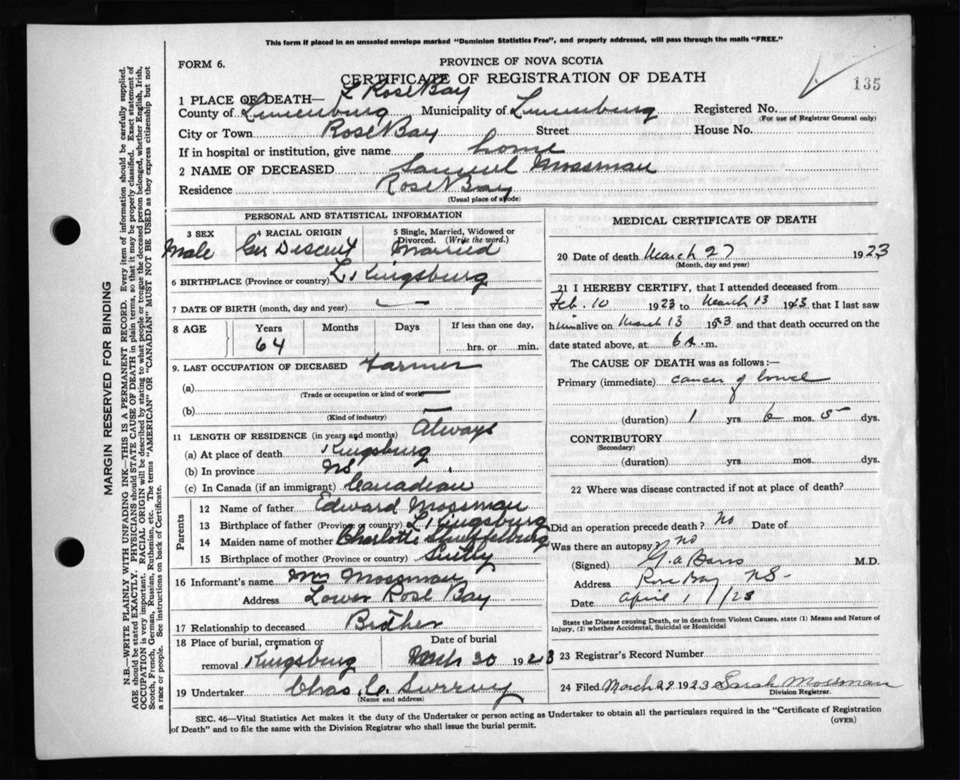 This form if placed in an unsealed envelope marked "Dominion Statistics Free", and properly addressed, will pass through the mails "FREE."
FORM 6.
PROVINCE OF NOVA SCOTIA
CERTIFICATE OF REGISTRATION OF DEATH
135
L Rose Bay
1 PLACE OF DEATH—
County of Lunenburg Municipality of Lunenburg Registered No.
(For use of Registrar General only)
City or Town Rose Bay Street House No.
If in hospital or institution, give name home
2 NAME OF DECEASED Samuel Mossman
Residence Rose Bay
(Usual place of abode)
PERSONAL AND STATISTICAL INFORMATION
3 SEX 4 RACIAL ORIGIN 5 Single, Married, Widowed or Divorced. (Write the word.)
Male Ger Descent Married
6 BIRTHPLACE (Province or country) L. Kingsburg
7 DATE OF BIRTH (month, day and year) —
8 AGE Years Months Days If less than one day,
64 hrs. or min.
9. LAST OCCUPATION OF DECEASED Farmer
(a) —
(Trade or occupation or kind of work)
(b) —
(Kind of industry)
11 LENGTH OF RESIDENCE (in years and months) Always
(a) At place of death Kingsburg
(b) In province NS
(c) In Canada (if an immigrant) Canadian
Parents
12 Name of father Edward Mossman
13 Birthplace of father (Province or country) L Kingsburg
14 Maiden name of mother Charlotte
15 Birthplace of mother (Province or country)
16 Informant's name Mossman
Address Lower Rose Bay
17 Relationship to deceased Brother
18 Place of burial, cremation or removal Kingsburg
Date of burial March 30 1923
19 Undertaker Chas. C.
(Name and address)
MEDICAL CERTIFICATE OF DEATH
20 Date of death March 27 1923
(Month, day and year)
21 I HEREBY CERTIFY, that I attended deceased from
Feb. 10 1923 to March 13 1923 that I last saw
him alive on March 13 1923 and that death occurred on
date stated above, at 6 A. m.
The CAUSE OF DEATH was as follows:—
Primary (immediate) cancer of bowel
(duration) 1 yrs 6 mos. 5 dys.
CONTRIBUTORY
(Secondary)
(duration) yrs. mos. dys.
22 Where was disease contracted if not at place of death?
Did an operation precede death? No Date of
Was there an autopsy? No
(Signed) M.D.
Address Rose Bay NS-
Date April 1 / 23
State the Disease causing Death, or in death from Violent Causes. state (1) Means and Nature of Injury, (2) whether Accidental, Suicidal or Homicidal
23 Registrar's Record Number
24 Filed March 29 1923 Sarah Mossman
Division Registrar.
SEC. 46—Vital Statistics Act makes it the duty of the Undertaker or person acting as Undertaker to obtain all the particulars required in the "Certificate of Registration
of Death" and to file the same with the Division Registrar who shall issue the burial permit.
(OVER)
MARGIN RESERVED FOR BINDING
N.B.—WRITE PLAINLY WITH UNFADING INK—THIS IS A PERMANENT RECORD. Every item of information should be carefully supplied.
AGE should be stated EXACTLY. PHYSICIANS should STATE CAUSE OF DEATH in plain terms, so that it may be properly classified. Exact statement of
OCCUPATION is very important. RACIAL ORIGIN will be described by stating to what people or tongue the deceased person belonged, whether English, Irish,
Scotch, French, German, Russian, Ruthenian, etc. The terms "AMERICAN" OR "CANADIAN" MUST NOT BE USED as they express citizenship but not
a race or people. See instructions on back of Certificate.